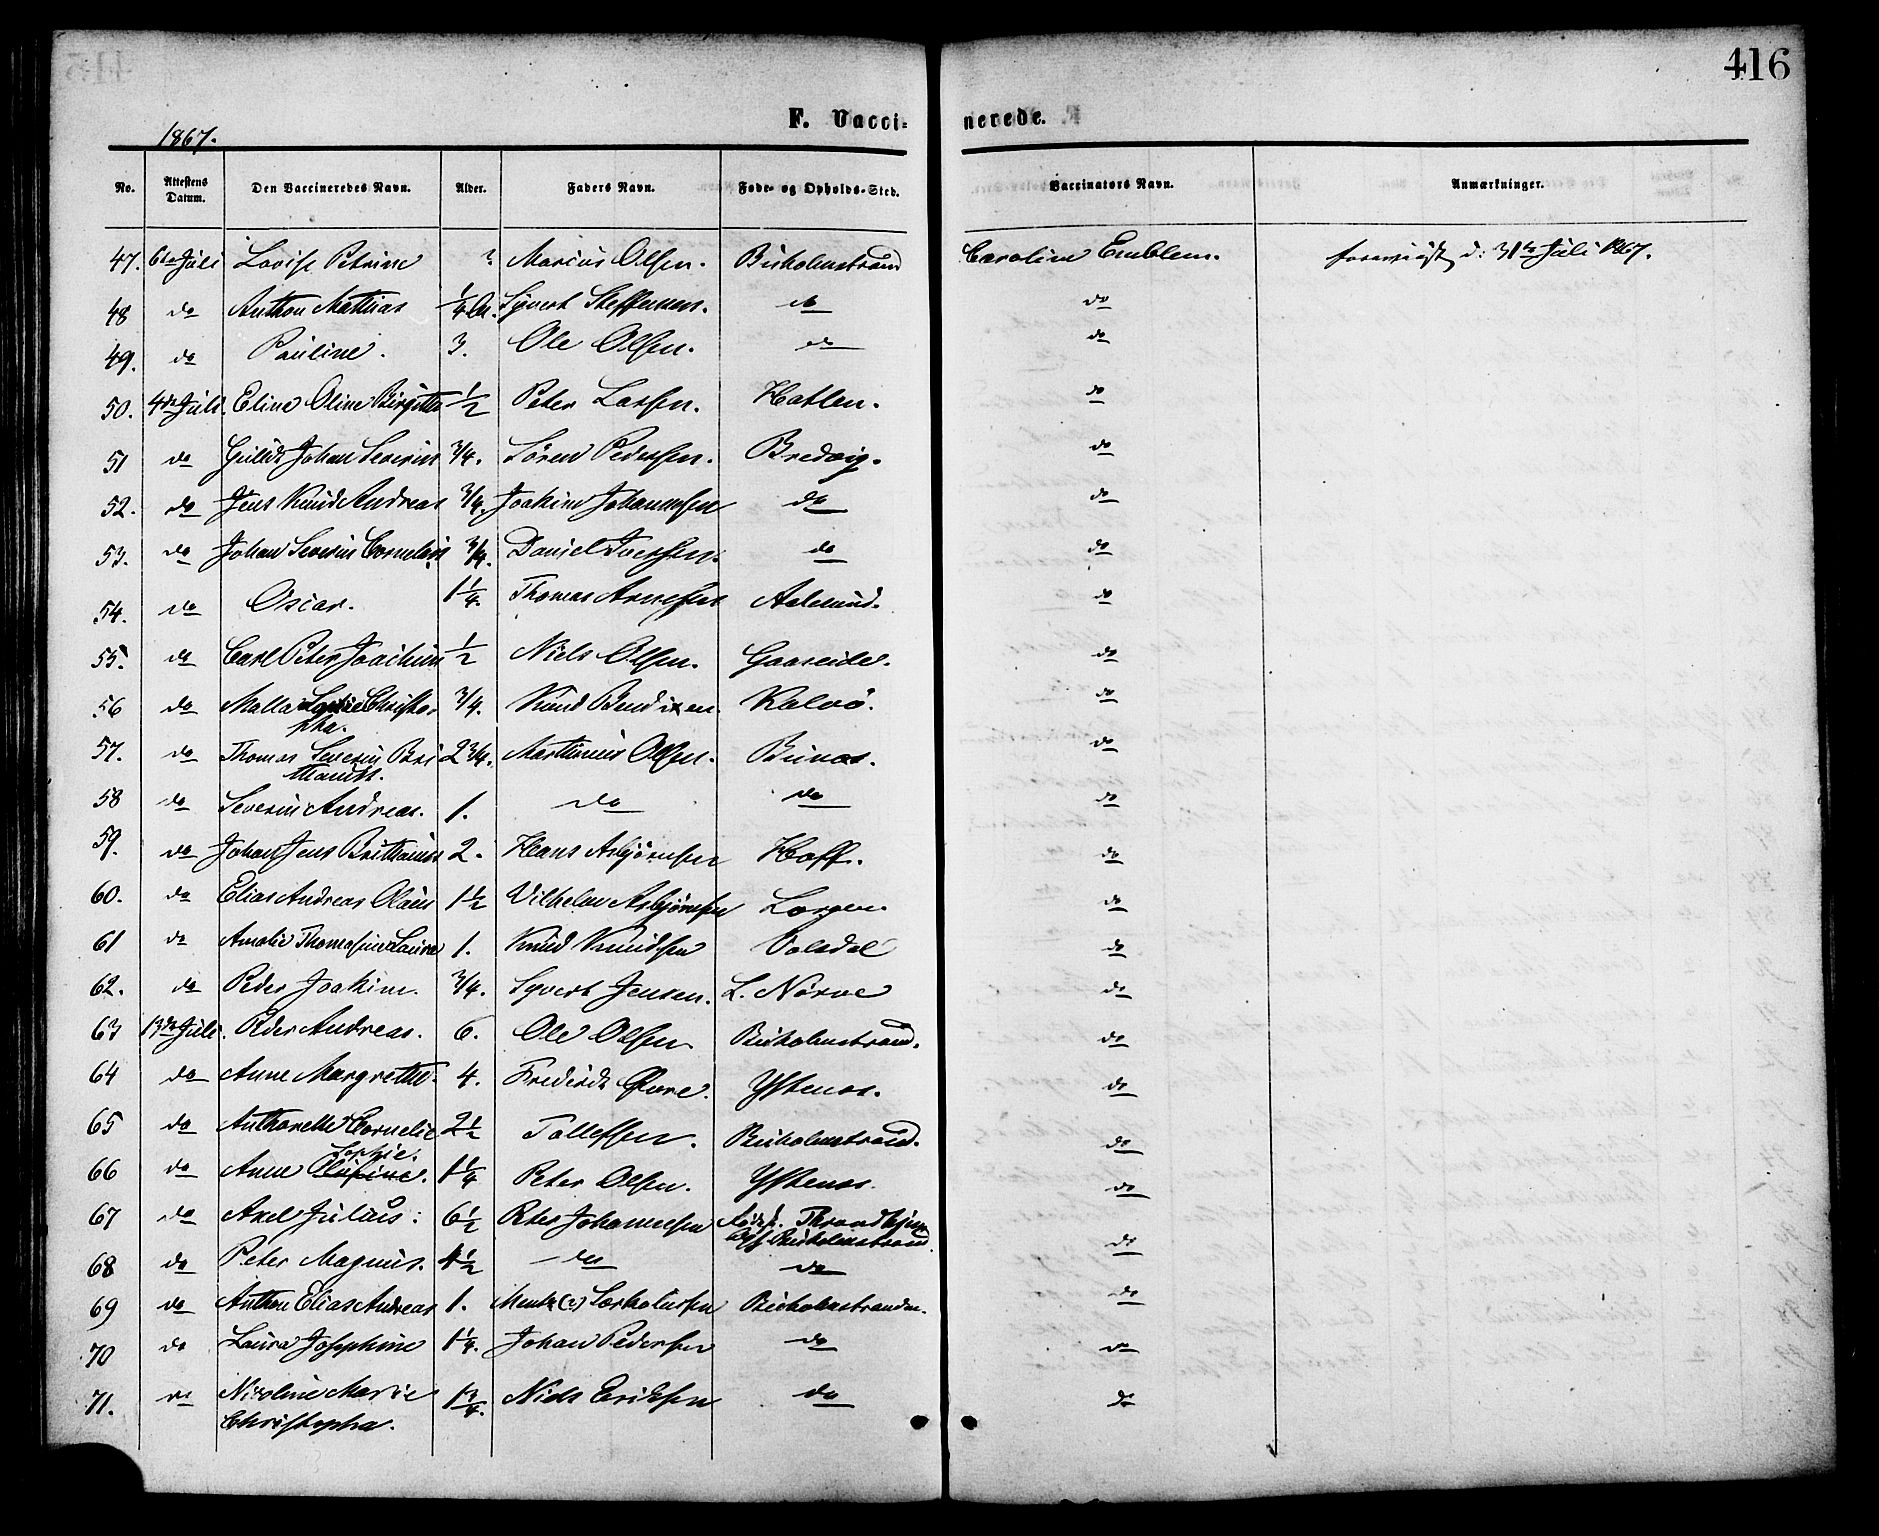 416
F. Vacci- nerede.
1867.
No. Attestens Datum. Den Vaccineredes Navn. Alder. Faders Navn. Føde- og Opholds-Sted. Vaccinators Navn. Anmærkninger.
47. 6te Juli Lovise Petrine ? Marius Olsen. Buholmstrand Caroline Emblem. foreviist d: 31te Juli 1867.
48 do Anthon Mathias 1/4 Syvert Steffensen. do do
49. do Pauline. 3. Ole Olsen. do do
50. 4de Juli. Eline Oline Birgitte 1/2 Peter Larsen. Hatlen. do
51 do Johan Severin 3/4. Sören Pedersen. Bredvig. do
52. do Jens Knud Andreas 3/4. Joakim Johannesen do do
53. do Johan Severin Cornelius 3/4. Daniel Iversen. do do
54. do Oscar. 1 1/4. Thomas Arnesen Aalesund. do
55. do Carl Peter Joachim 1/2 Niels Olsen. Gaaseidet. do
56 do Malla Christo- 3/4. Knud Bendixen. Kalvö. do
pha.
57. do Thomas Severin Bri 2 3/4. Marthinus Olsen. Bunæs. do
58 do Severin Andreas. 1. do do do
59. do Johan Jens Brithanus 2. Hans Asbjörnsen Hoff. do
60. do Elias Andreas Olaus 1 1/2 Vilhelm Asbjörnsen Lorgen do
61 do Amalie Thomasine Laura 1. Knud Knudsen Volsdal do
62. do Peder Joakim. 3/4. Syvert Jensen. L. Nörve do
63 13de Juli. Peder Andreas. 6. Ole Olsen Buholmstrand. do
64 do Anne Margrethe. 4. Frederik Ystenæs. do
65 do Anthonette Cornelie 2 1/2 Tollefsen. Buholmstrand. do
Sophie.
66 do Anne. 1 1/4 Peter Olsen. Ystenæs. do
67 do Axel Julius: 6 1/2 Peter Johannesen Födest. Throndhjem
Buholmstrand. do
68 do Peter Magnus. 4 1/2 do do do
69 do Anthon Elias Andreas 1. Mentz (?) Buholmstranden. do
70 do Laura Josephine 1 1/4. Johan Pedersen do do
71. do Nicoline Marie 1 3/4. Niels Eriksen do do
Christopha.